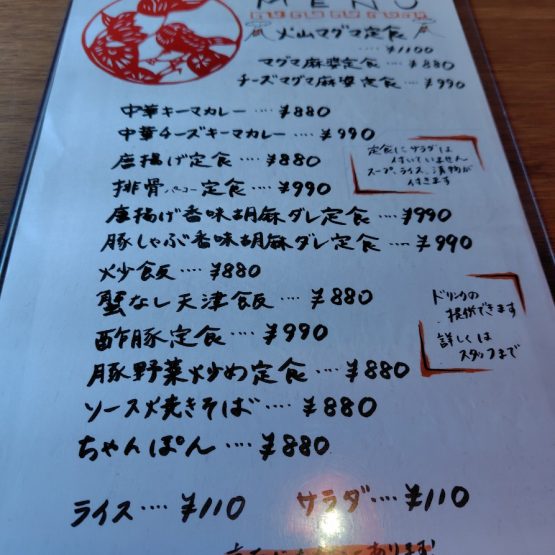 MENU
火山マグマ定食
‥‥ ¥1100
マグマ麻婆定食‥‥ ¥880
チーズマグマ麻婆定食‥‥ ¥990
中華キーマカレー‥‥ ¥880
中華チーズキーマカレー‥‥ ¥990
唐揚げ定食‥‥ ¥880
定食にサラダは
付いていません
スープ、ライス、漬物が
付きます
排骨パーコー定食‥‥ ¥990
唐揚げ香味胡麻ダレ定食‥‥ ¥990
豚しゃぶ香味胡麻ダレ定食‥‥ ¥990
炒飯‥‥ ¥880
蟹なし天津飯‥‥ ¥880
酢豚定食‥‥ ¥990
ドリンクの
提供できます
詳しくは
スタッフまで
豚野菜炒め定食‥‥ ¥880
ソース焼きそば‥‥ ¥880
ちゃんぽん‥‥ ¥880
ライス‥‥ ¥110 サラダ‥‥ ¥110
あります!